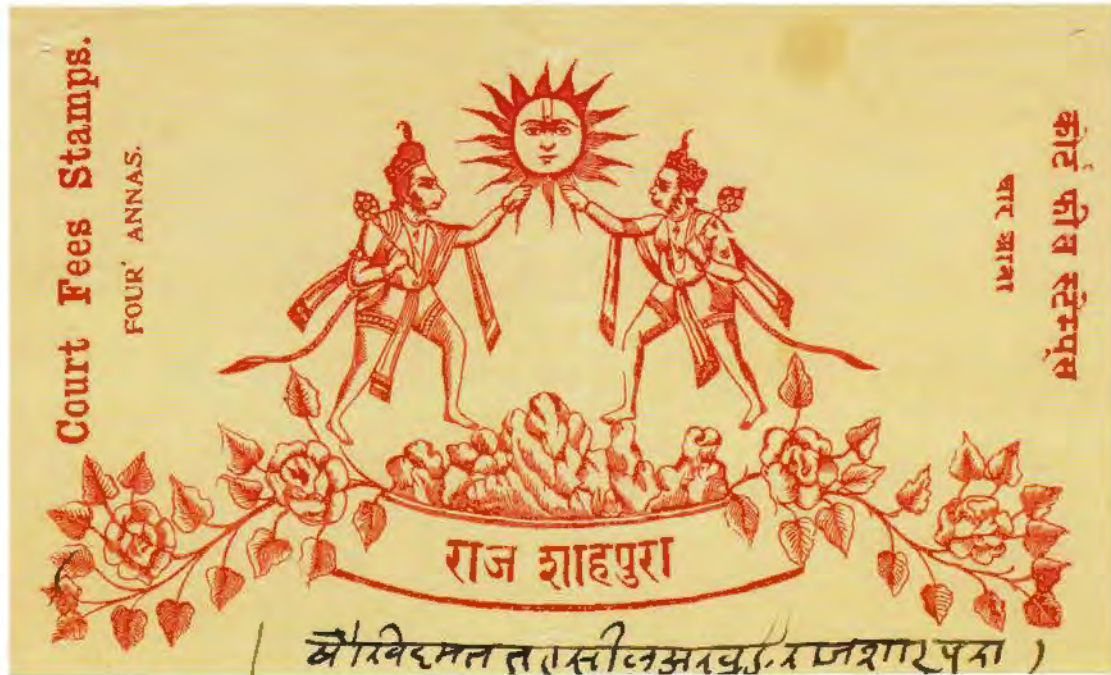 Court Fees Stamps.
FOUR' ANNAS.
कोर्ट फीस स्टेम्पूस
चार आना
राज शाहपुरा